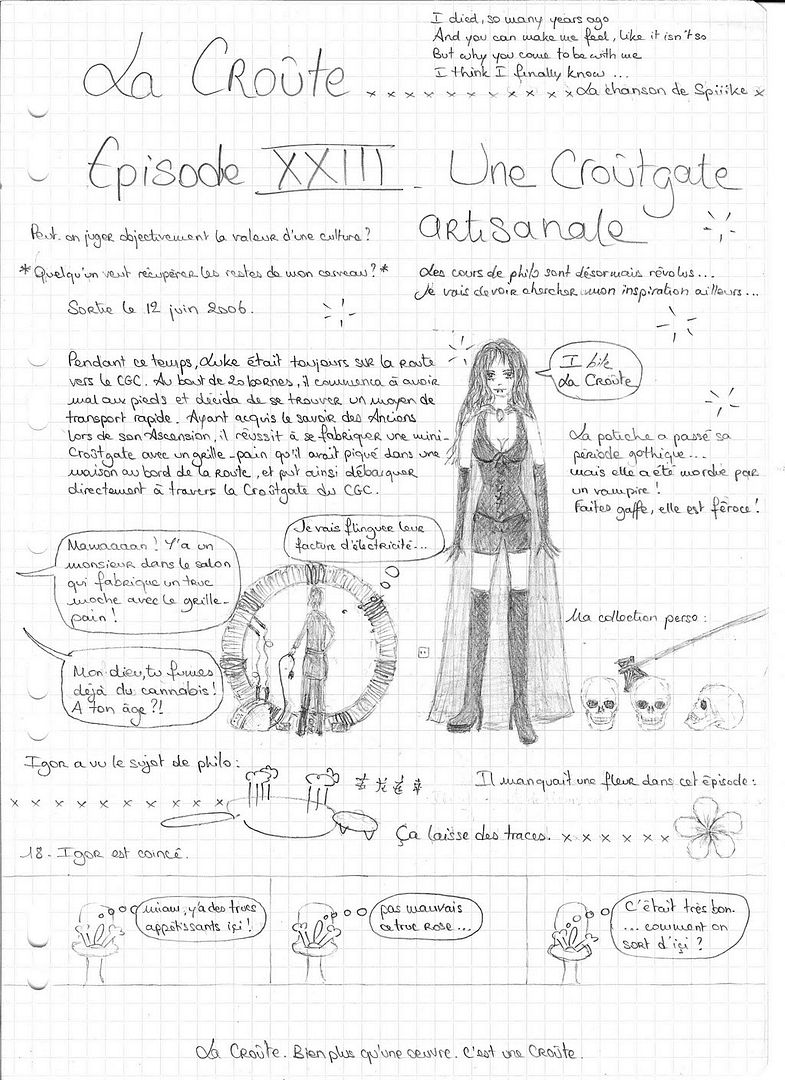 I died, so many years ago
And you can make me feel, like it isn't so
But why you come to be with me
I think I finally know ...
La Croûte x x x x x x x x x x x La chanson de Spiiike x
Episode XXIII - Une Croûtgate
artisanale
Peut-on juger objectivement la valeur d'une culture ?
*Quelqu'un veut récupérer les restes de mon cerveau ?*
Sortie le 12 juin 2006.
Les cours de philo sont désormais révolus...
Je vais devoir chercher mon inspiration ailleurs...
Pendant ce temps, Luke était toujours sur la route
vers le CGC. Au bout de 20 bornes, il commença à avoir
mal aux pieds et décida de se trouver un moyen de
transport rapide. Ayant acquis le savoir des Anciens
lors de son Ascension, il réussit à se fabriquer une mini-
Croûtgate avec un grille-pain qu'il avait piqué dans une
maison au bord de la route, et put ainsi débarquer
directement à travers la Croûtgate du CGC.
I bite
La Croûte
La potiche a passé sa
période gothique...
mais elle a été mordue par
un vampire !
Faites gaffe, elle est féroce !
Mamaaaan ! Y'a un
monsieur dans le salon
qui fabrique un truc
moche avec le grille-
pain !
Je vais flinguer leur
facture d'électricité...
Mon dieu, tu fumes
déjà du cannabis !
A ton âge ?!
Ma collection perso :
Igor a vu le sujet de philo :
x x x x x x x x x x
Il manquait une fleur dans cet épisode :
Ça laisse des traces. x x x x x x
18. Igor est coincé.
miam, y'a des trucs
appétissants içi !
pas mauvais
ce truc rose...
C'était très bon.
... comment on
sort d'içi ?
La Croûte. Bien plus qu'une œuvre. C'est une Croûte.